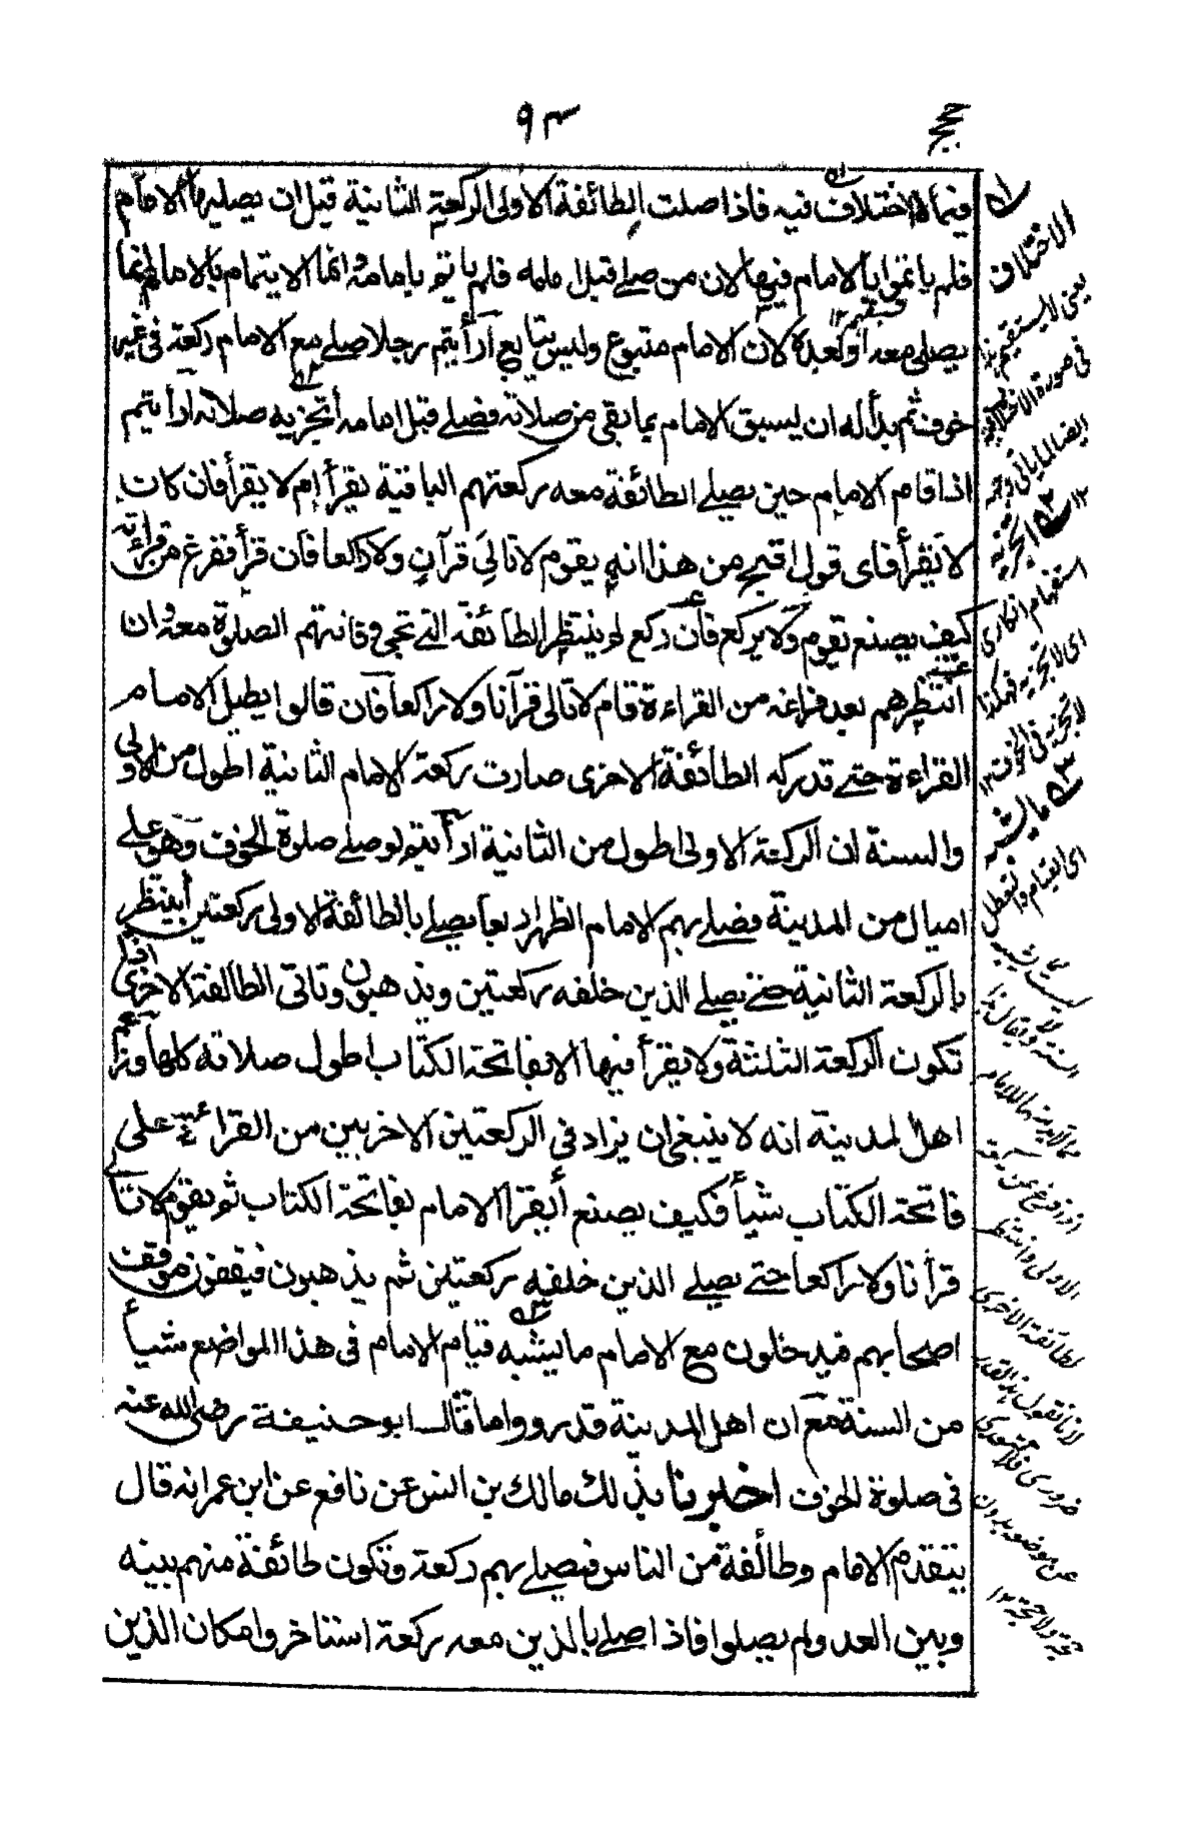 ٩٣
حجج
فيما لا اختلاف فيه فاذا صلت الطائفة الاولى الركعة الثانية قبل ان يصليها الامام
فلم ياتموا بالامام فيها لان من صلے قبل امامه فلم ياتم بامامه وانما الايتمام بالامام انما
يصلى معه او بعده لان الامام متبوع وليس بتابع أرأيتم رجلا صلے مع الامام ركعة فى غير
خوف ثم بدأ له ان يسبق الامام بما بقى من صلاته فصلے قبل امامه أتجزيه صلاته ارأيتم
اذا قام الامام حين يصلے الطائفة معه ركعتهم الباقية يقرأ ام لا يقرأ فان كان
لا يقرأ فاى قول اقبح من هذا انه يقوم لا تالى قرآن ولا راكعا فان قرأ ففرغ من قراءته
كيف يصنع يقوم ولا يركع فان ركع لم ينتظر الطائفة التے تجئ وفاتتهم الصلوة معه وان
انتظرهم بعد فراغه من القراءة قام لا تالى قرآنا ولا راكعا فان قالوا يطيل الامام
القراءة حتے تدركه الطائفة الاخرى صارت ركعة الامام الثانية اطول من الاولى
والسنة ان الركعة الاولى اطول من الثانية ارأيتم لو صلے صلوة الخوف وهو على
اميال من المدينة فصلے بهم الامام الظهر اربعا يصلے بالطائفة الاولى ركعتين أينتظر
بالركعة الثانية حتے يصلے الذين خلفه ركعتين ويذهبون وتاتى الطائفة الاخرى اذا
تكون الركعة الثلثة ولا يقرأ فيها الا بفاتحة الكتاب اطول صلاته كلها وقرأ
اهل المدينة انه لا ينبغى ان يزاد فى الركعتين الاخريين من القراءة على
فاتحة الكتاب شيأ فكيف يصنع أيقرأ الامام بفاتحة الكتاب ثم يقوم لا تالى
قرأنا ولا راكعا حتے يصلے الذين خلفه ركعتين ثم يذهبون فيقفون موقف
اصحابهم فيدخلون مع الامام ما يشبه قيام الامام فى هذا المواضع شيأ
من السنة مع ان اهل المدينة قد رووا ما قال ابو حنيفة رضى الله عنه
فى صلوة الخوف اخبرنا بذلك مالك بن انس عن نافع عن ابن عمر انه قال
يتقدم الامام وطائفة من الناس فيصلے بهم ركعة وتكون طائفة منهم بينه
وبين العدو ولم يصلوا فاذا صلے بالذين معه ركعة استاخروا مكان الذين
الاختلاف
يعنى لا يستقيم
فى صورة
ايضا لما ياتى
١٢
استفهام انكارى
اى لا تجزيه فهكذا
لا تجزيه فى الخوف ١٢
ما يشبه
اى القيام